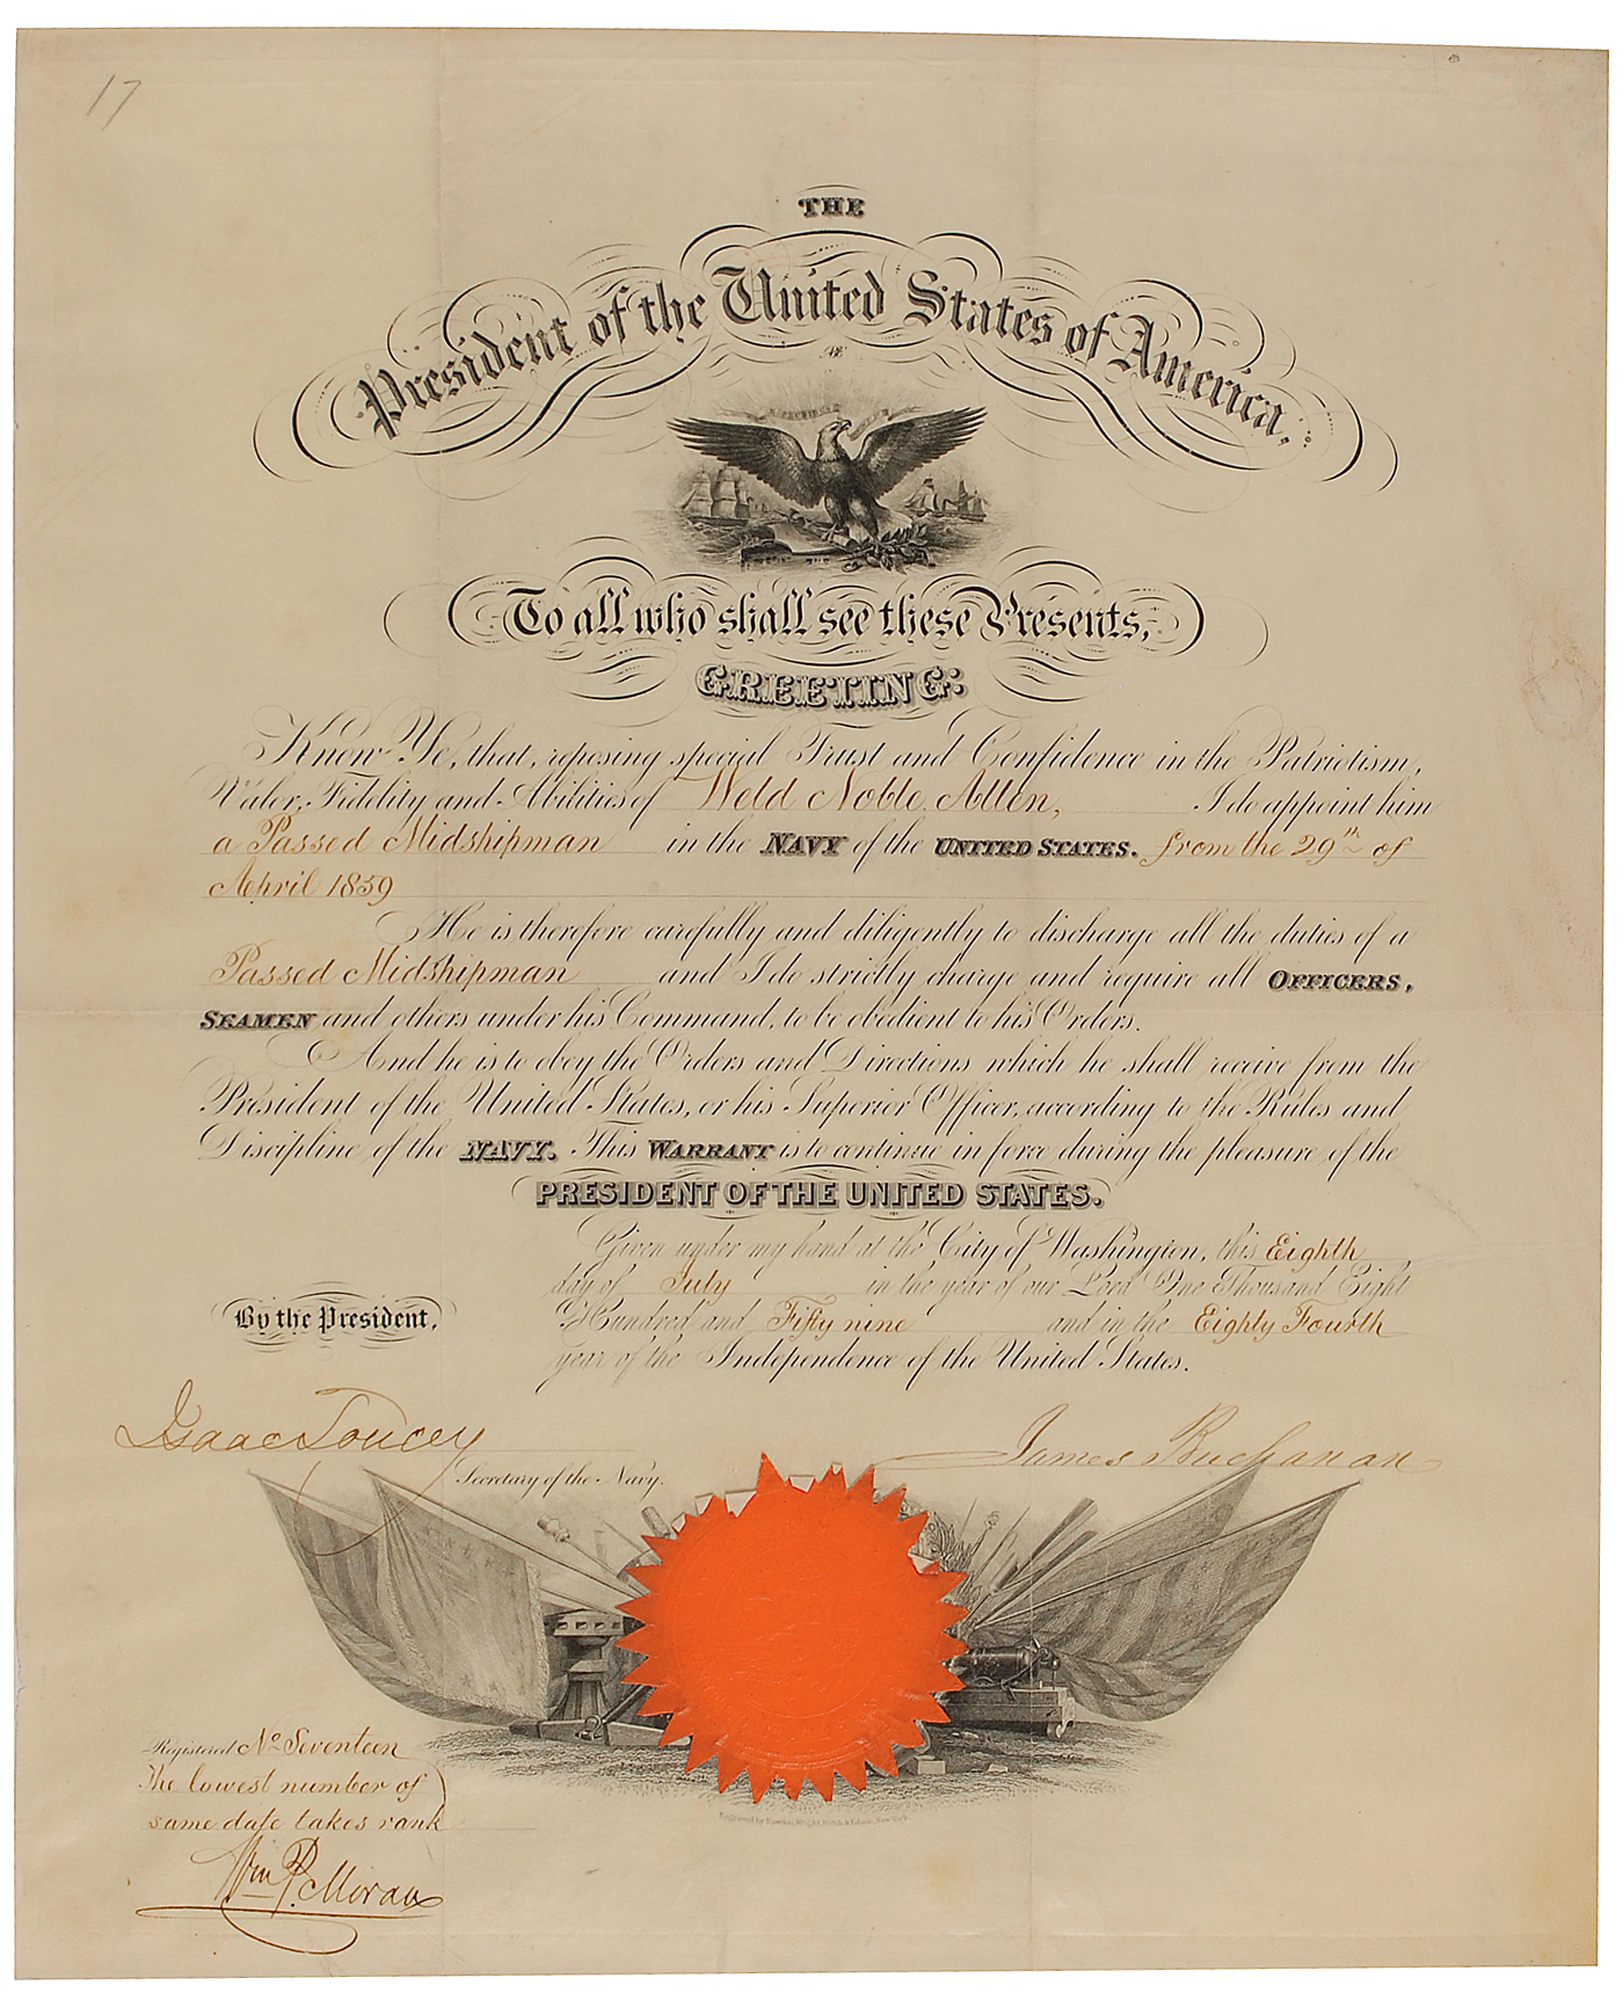 17
THE
President of the United States of America,
To all who shall see these Presents,
GREETING:
Know Ye, that, reposing special Trust and Confidence in the Patriotism,
Valor, Fidelity and Abilities of Weld Noble Allen, I do appoint him
a Passed Midshipman in the NAVY of the UNITED STATES. from the 29th of
April 1859
He is therefore carefully and diligently to discharge all the duties of a
Passed Midshipman and I do strictly charge and require all OFFICERS,
SEAMEN and others under his Command, to be obedient to his Orders.
And he is to obey the Orders and Directions which he shall receive from the
President of the United States, or his Superior Officer, according to the Rules and
Discipline of the NAVY. This WARRANT is to continue in force during the pleasure of the
PRESIDENT OF THE UNITED STATES.
Given under my hand at the City of Washington, this Eighth
day of July in the year of our Lord One Thousand Eight
Hundred and Fifty nine and in the Eighty Fourth
year of the Independence of the United States.
By the President,
Isaac Toucey
James Buchanan
Secretary of the Navy.
Registered No Seventeen
The lowest number of
same date takes rank
Wm P. Moran
Engraved by Rawdon, Wright, Hatch & Edson, New York